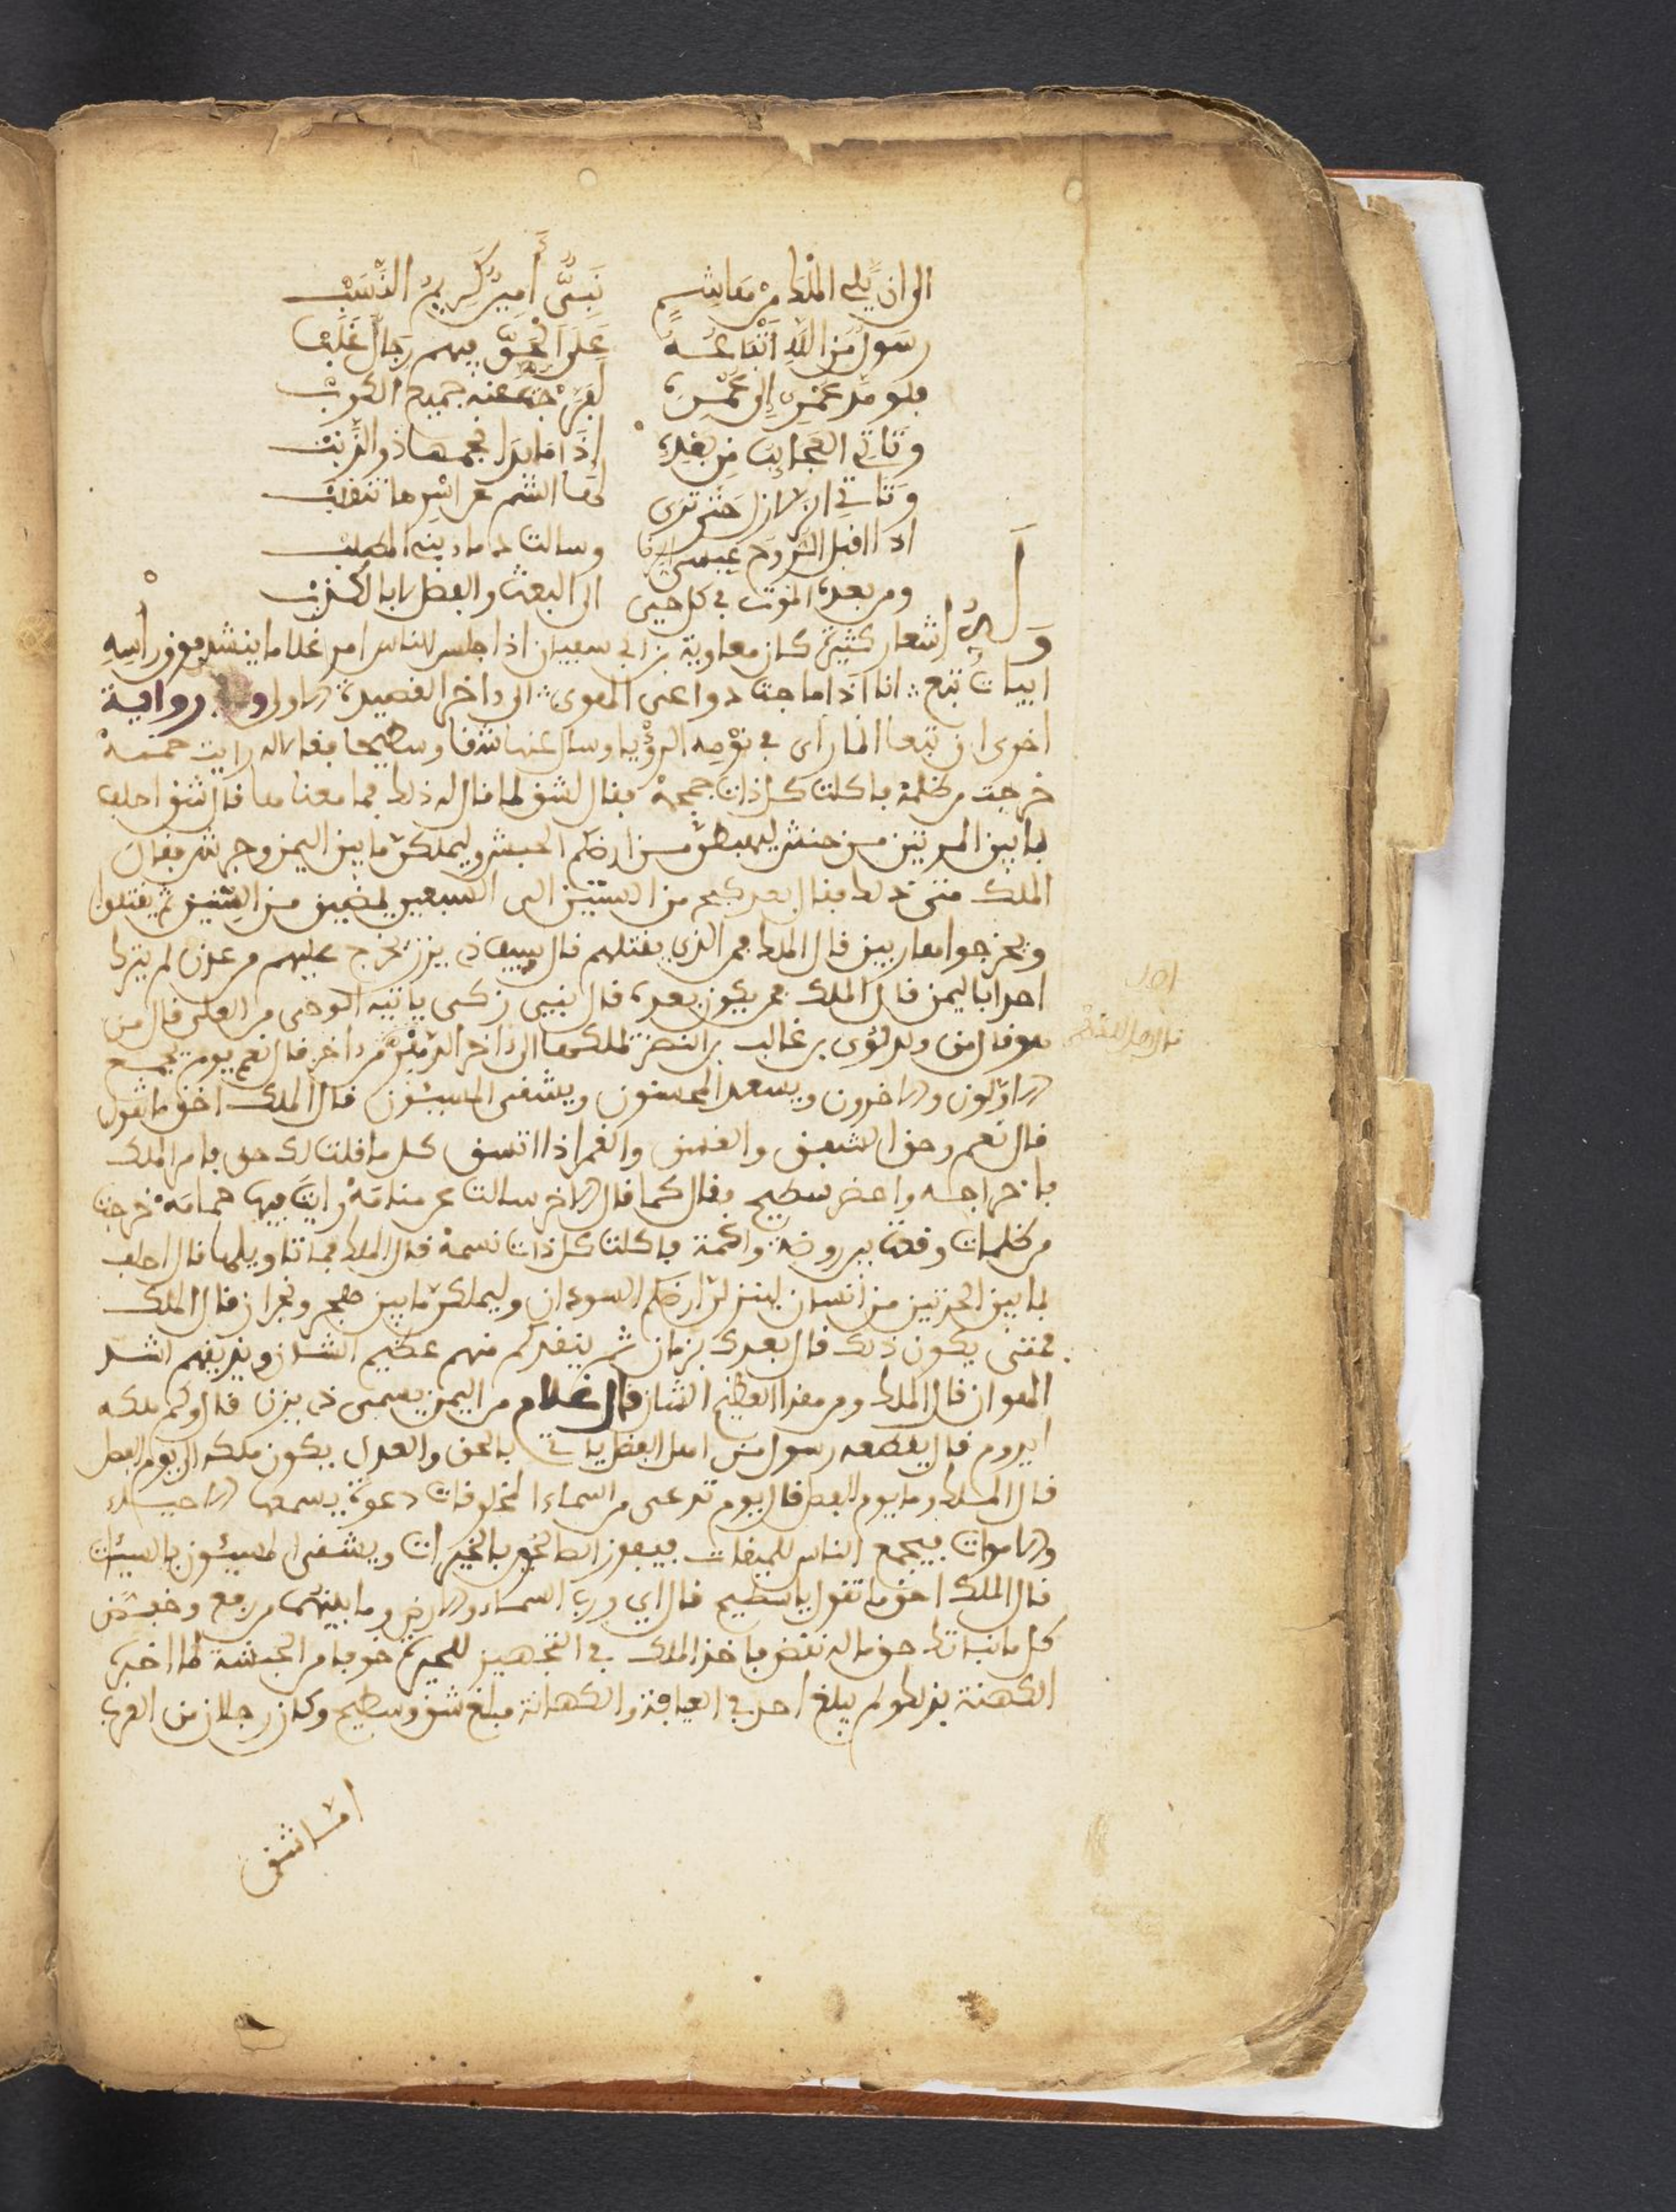 الى ان يلي الملك من هاشم نبي أمين كريم النسب
رسول من الله أتباعه على الحق فيهم رجال غلب
فلو مد عمري إلى عمره لفرجت عنه جميع الكرب
وتاتي العجائب من بعده إذا ما بدا نجمها ذو الذنب
وتاتي الزلازل حتى ترى لها الشم عن اسرها تنقلب
اذا اقبل الروح عيسى
ومن بعده الموت في كل حي الى البعث والفصل لا بالكذب
وله اشعار كثيرة كان معاوية بن ابي سفيان اذا جلس للناس امر غلاما ينشد فوق راسه
ابيات تبع انا اذا ما جت دواعي الهوى الى داخر القصيدة الاولى وفي رواية
اخرى ان تبعا لما رأى في نومه الرؤيا وسال عنها شقا وسطيحا فقالا له رايت حممة
خرجت من ظلمة فاكلت كل ذات جمجمة فقال لشق لما قال له ذلك فما معناها قال شق احلف
بما بين الحرتين من حنش ليهبطن من ارضكم الحبش وليملكن ما بين اليمن وجرش فقال
الملك متى ذلك فقال بعدكم من الستين الى السبعين يمضين من السنين ثم يقتلوا
ويخرجوا هاربين قال الملك فمن الذي يقتلهم قال سيف ذي يزن يخرج عليهم من عدن لم يترك
احدا باليمن قال الملك فمن يكون بعده قال نبي زكي ياتيه الوحي من العلي قال من
هو قال من ولد لؤي بن غالب بن النضر ملكها الى داخر الدهر من داخر قال نعم يوم يجمع
الاولون والاخرون ويسعد المحسنون ويشقى المسيئون قال الملك احق ما تقول
قال نعم وحق الشفق والغسق والقمر اذا اتسق كل ما قلت لك حق فامر الملك
باخراجه واحضر سطيح فقال كما قال الاخر سالت عن منامة رايت فيها حمامة خرجت
من ظلمات وقعت بين روضة واكمة فاكلت كل ذات نسمة قال الملك فما تاويلها قال احلف
بما بين الحرتين من انسان لينزلن ارضكم السودان وليملكن ما بين هجر ونجران قال الملك
فمتى يكون ذلك قال بعدك بزمان ثم ينقدكم منهم عظيم الشان ويذيقهم اشد
الهوان قال الملك ومن هذا العظيم الشان قال غلام من اليمن يسمى ذي يزن قال وكم ملكه
ايدوم قال يقطعه رسول من اهل الفضل ياتي بالحق والعدل يكون ملكه الى يوم الفصل
قال الملك وما يوم الفصل قال يوم تدعى من السماء المخلوقات دعوة يسمعها الاحياء
والاموات فيجمع الناس للميقات فيفوز اهل الخير بالخيرات ويشقى المسيئون بالسيئات
قال الملك احق ما تقول يا سطيح قال اي ورب السماء والارض وما بينهما من رفع وخفض
كل ما نباتك حق ما له نقض فاخذ الملك في التجهيز للحيرة خوفا من الحبشة لما اخبره
الكهنة بذلك ولم يبلغ احد في العيافة والكهانة مبلغ شق وسطيح وكان رجلان من العرب
اما شق